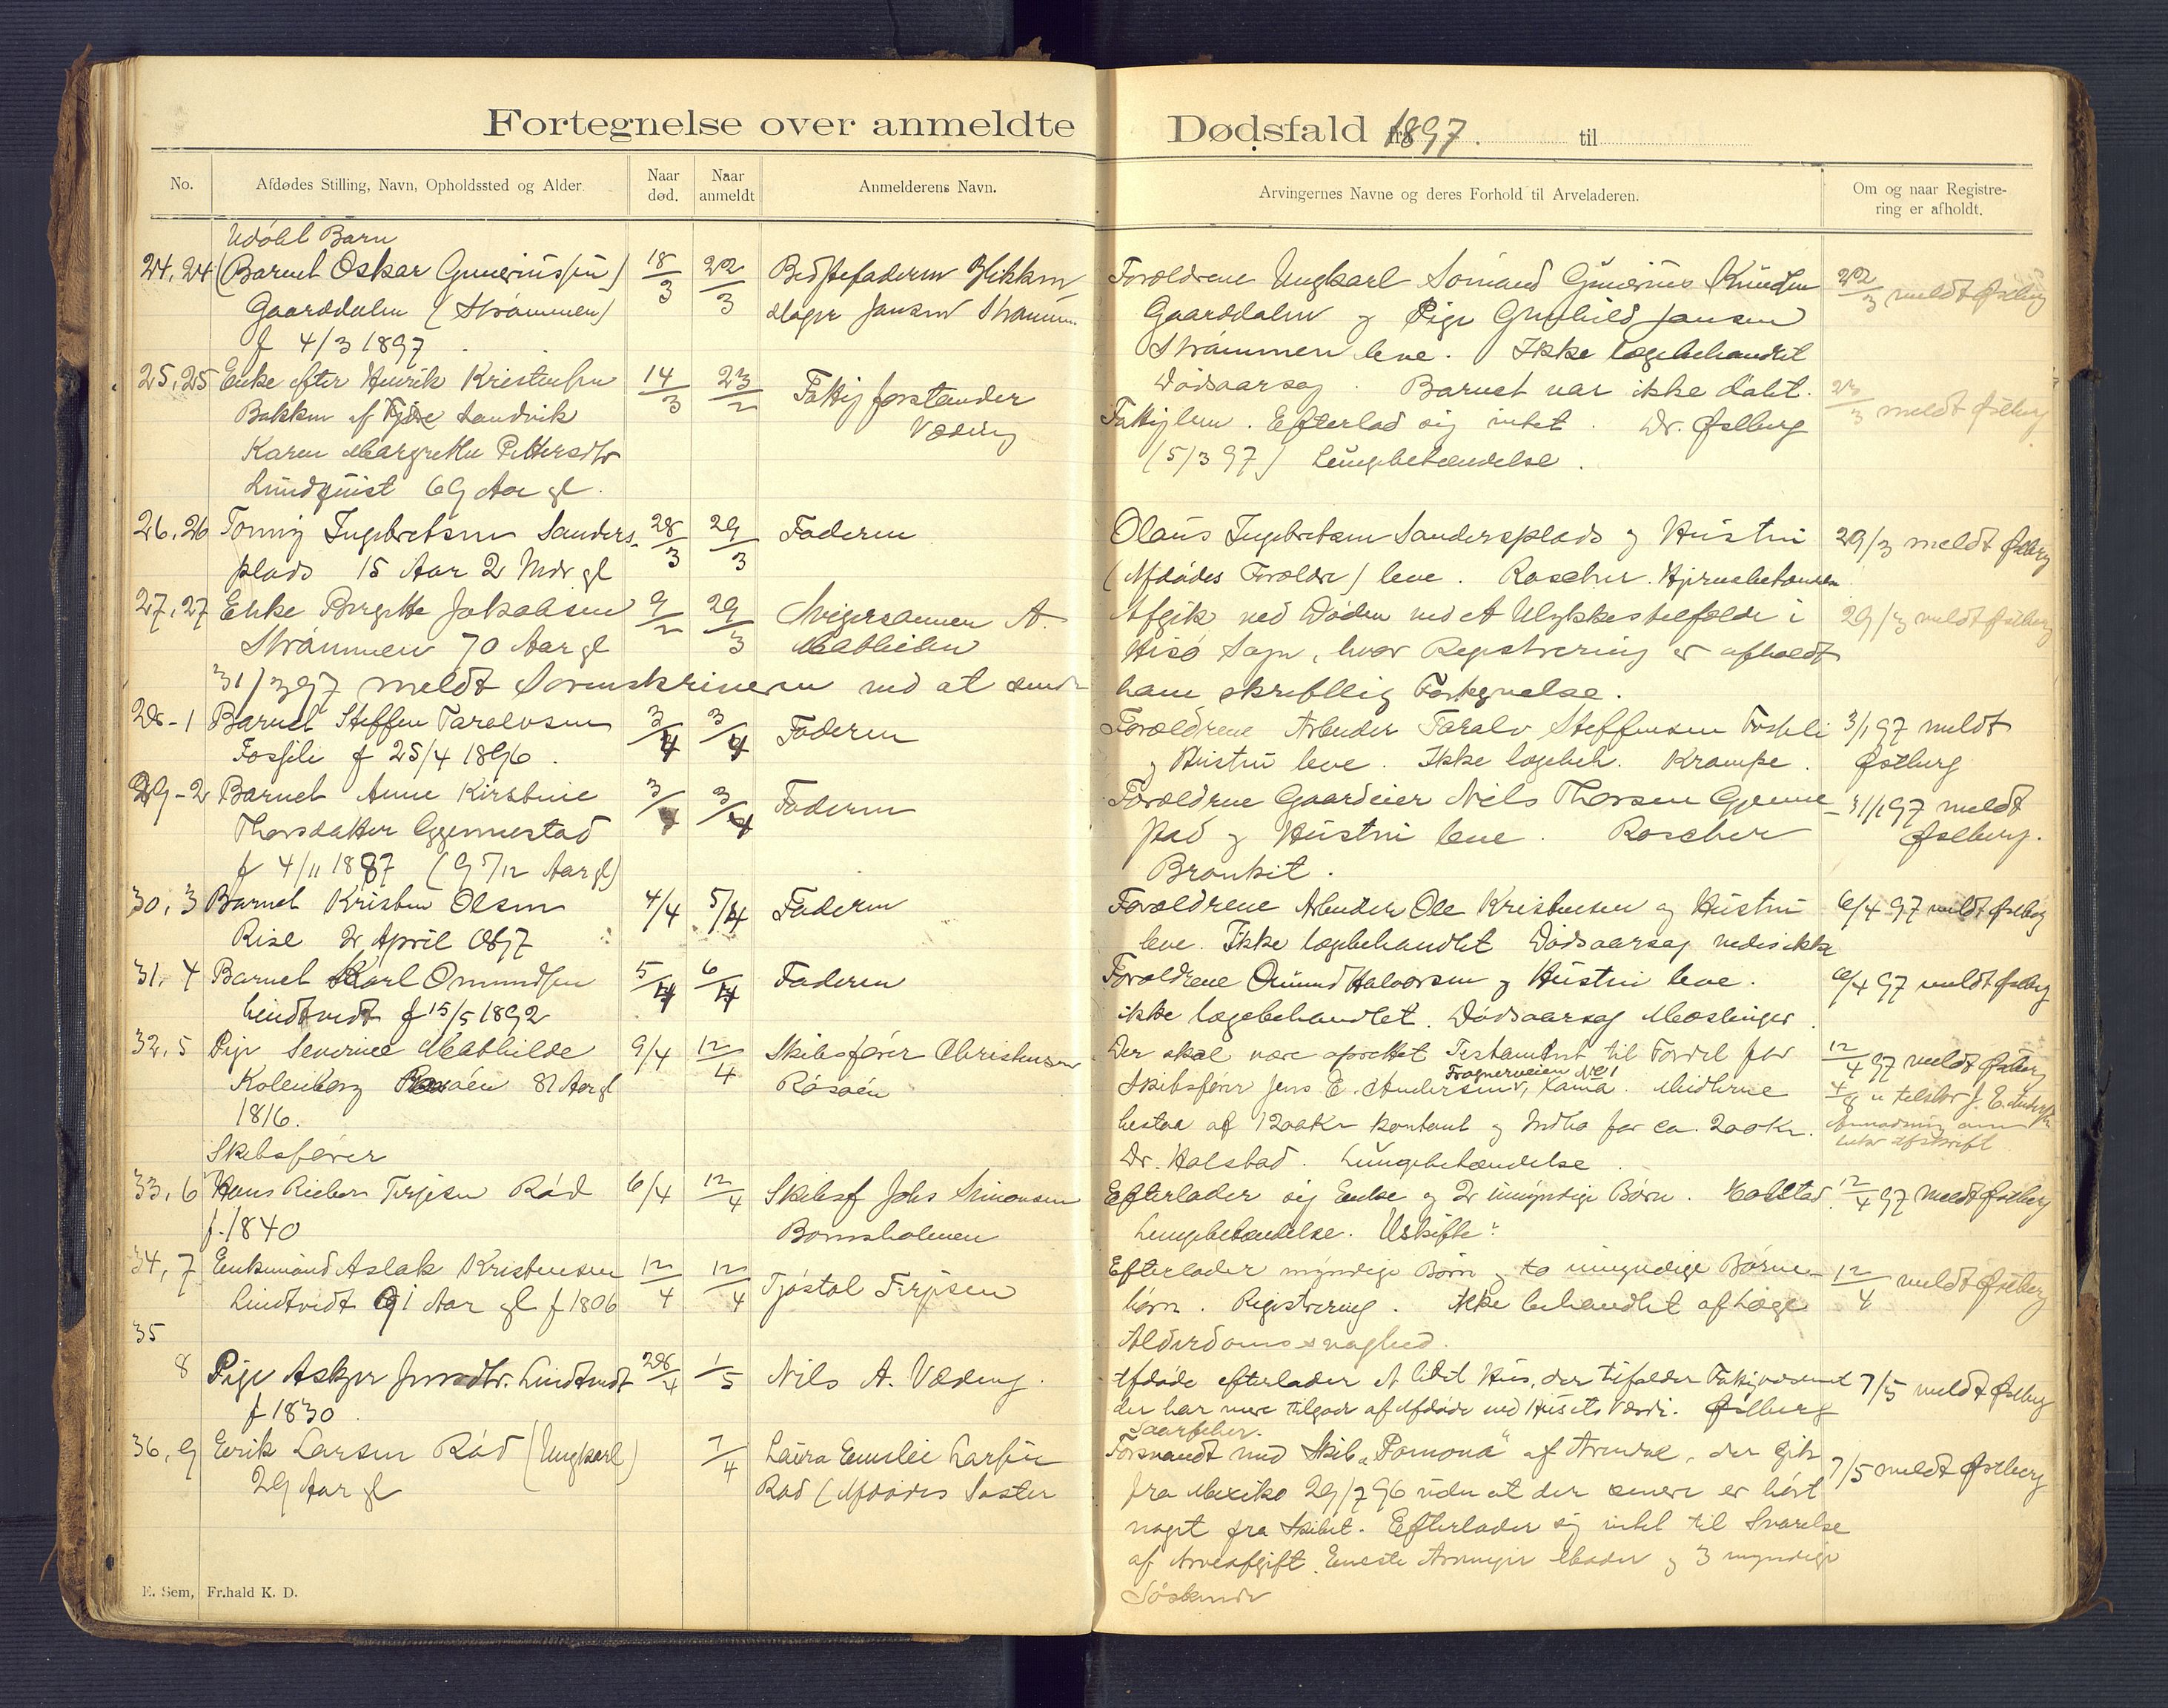 Fortegnelse over anmeldte Dødsfald fra 1897. til
No.
Afdødes Stilling, Navn, Opholdssted og Alder.
Naar død.
Naar anmeldt
Anmelderens Navn.
Arvingernes Navne og deres Forhold til Arveladeren.
Om og naar Registrering er afholdt.
Udöbt Barn
24, 24 (Barnet Oskar Gunerinssen) 18/3 22/3 Bedstefaderen Blikken-
Gaarddalen (Strømmen) slager Jansen Strømmen
f 4/3 1897
Forældrene Ungkarl Sömand Gunerius Knudsen 22/3 meldt Østberg
Gaarddalen og Pige Gunhild Jansen
Strømmen leve. Ikke lægebehandlet
Dødsaarsag. Barnet var ikke døbt.
25, 25 Enke efter Henrik Kristensen 14/3 23/2 Fattigforstander
Bakken af Fjære Landvik Væding
Karen Margrethe Pettersdtr
Lundquist 69 Aar gl.
Fattiglem. Efterlod sig intet. Dr. Østberg 23/3 meldt Østberg
(5/3 97) Lungebetændelse.
26, 26 Tonny Ingebretsen Sanders- 28/3 29/3 Faderen
plads 15 Aar 2 Mdr gl
Olaus Ingebretsen Sandersplads og Hustru 29/3 meldt Østberg
(Afdødes Forældre) leve. Roscher. Hjernebetændelse
27, 27 Enke Birgitte Jakobsen 9/2 29/3 Svigersønnen A.
Strømmen 70 Aar gl Mathisen
Afgik ved Døden ved et Ulykkestilfælde i 29/3 meldt Østberg
Hisö Sogn, hvor Registrering er afholdt
31/3 97 meldt Sorenskriveren ved at sende ham skriftlig Fortegnelse.
28 - 1 Barnet Steffen Taralvsen 3/4 3/4 Faderen
Fosseli f 25/4 1896.
Forældrene Arbeider Taralv Steffensen Fosseli 3/1 97 meldt
og Hustru leve. Ikke lægebeh. Krampe. Østberg
29 - 2 Barnet Anne Kirstine 3/4 3/4 Faderen
Thorsdatter Gjennestad
f 4/11 1887 (9 5/12 Aar gl)
Forældrene Gaardeier Nils Thorsen Gjenne- 31/1 97 meldt
stad og Hustru leve. Roscher Østberg.
Bronkit.
30, 3 Barnet Kristen Olsen 4/4 5/4 Faderen
Rise 2 April 1897
Forældrene Arbeider Ole Kristensen og Hustru 6/4 97 meldt Østberg
leve. Ikke lægebehandlet Dødsaarsag vedes ikke
31, 4 Barnet Karl Omundsen 5/4 6/4 Faderen
Lindtvedt f 15/5 1892
Forældrene Omund Halvorsen og Hustru leve. 6/4 97 meldt Østberg
ikke lægebehandlet. Dødsaarsag Mæslinger.
32, 5 Pige Severine Mathilde 9/4 12/4 Skibsfører Christensen
Kolenberg Rosöen 81 Aar gl Rösöen
1816.
Der skal være oprettet Testament til Fordel for 12/4 97 meldt Østberg
Frognerveien No 1
Skibsfører Jens E. Andersen, Xania. Midlerne
bestaa af 1200 Kr kontant og Indbo for ca. 200 Kr.
Dr. Holstad. Lungebetændelse
Skibsfører
33, 6 Hans Rieber Terjesen Röd 6/4 12/4 Skibsf Johs Simonsen
f. 1840 Bomsholmen
Efterlader sig Enke og 2 umyndige Børn. Holstad. 12/4 97 meldt Østberg
Lungebetændelse. Uskifte?
34, 7 Enkemand Aslak Kristensen 12/4 12/4 Tjöstol Terjesen
Lindtvedt 91 Aar gl f 1806
Efterlader myndige Børn og to umyndige Børne- 12/4 meldt Østberg
børn. Registrering. Ikke behandlet af Læge
Alderdomssvaghed.
35
8 Pige Asker Jensdtr. Lindtvedt 28/4 1/5 Nils A. Væding.
f 1830
Afdøde efterlader et lidet Hus, der tilfalder Fattigvæsenet 7/5 meldt Østberg
der har mere tilgode af Afdøde end Husets Værdi. Østberg
Saarfeber.
36, 9 Eerik Larsen Röd (Ungkarl) 7/4 Laura Emilie Larsen
29 Aar gl Röd (Afdødes Søster
Forsvandt med Skib "Pomona" af Arendal, der gik 7/5 meldt Østberg
fra Mexiko 29/7 96 uden at der senere er hørt
noget fra Skibet. Efterlader sig intet til Svarelse
af Arveafgift. Eneste Arvinger Moder og 3 myndige
Söskende
E. Sem, Fr.hald K. D.